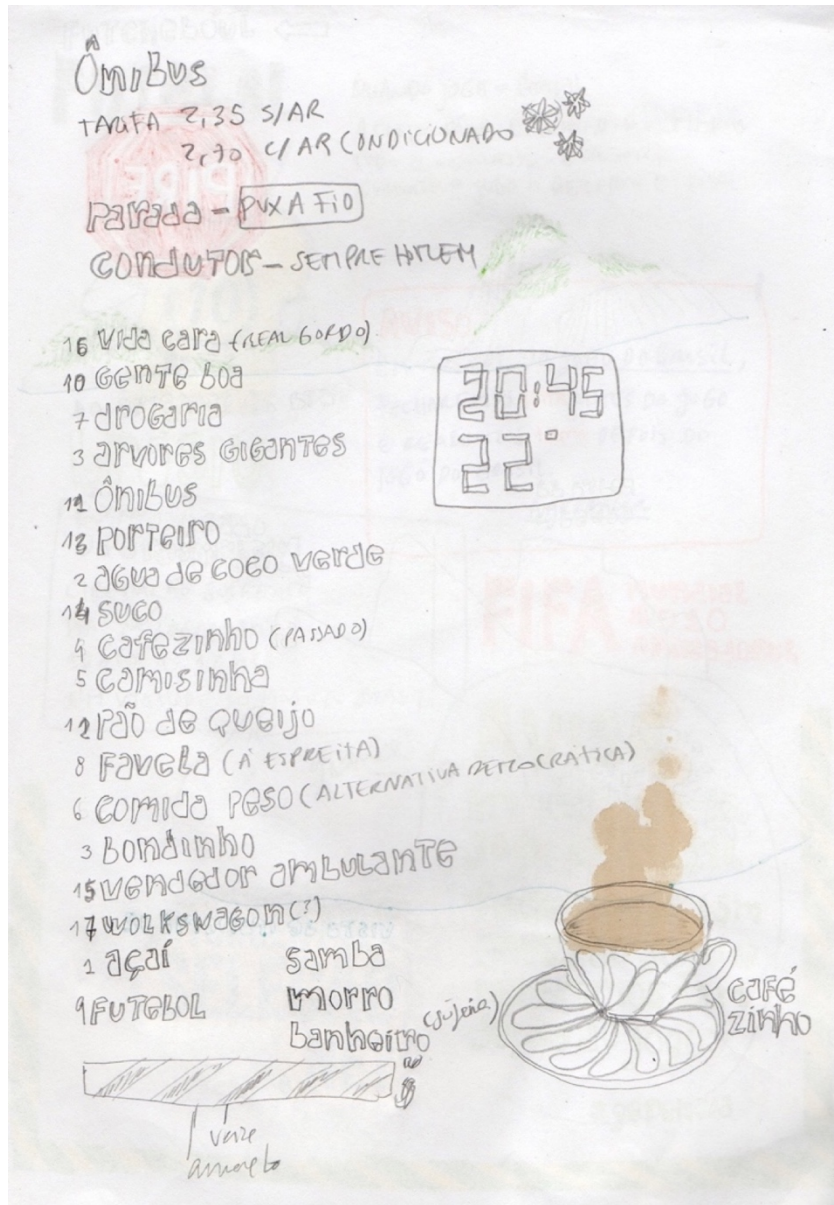 Ônibus
TARIFA 2,35 S/AR
2,70 C/ AR CONDICIONADO
Parada - PUXA FIO
CONDUTOR - SEMPRE HOMEM
16 vida cara (REAL GORDO)
10 GENTE BOA
7 drogaria
3 arvores GIGANTES
11 Ônibus
13 PORTEIRO
2 agua de coco verde
14 suco
4 cafezinho (PASSADO)
5 camisinha
12 pão de queijo
8 Favela (À ESPREITA)
6 comida peso (ALTERNATIVA DEMOCRÁTICA)
3 bondinho
15 vendedor ambulante
17 WOLKSWAGON (?)
1 açaí
9 FUTEBOL
samba
morro
banheiro
20:45
22°
café
zinho